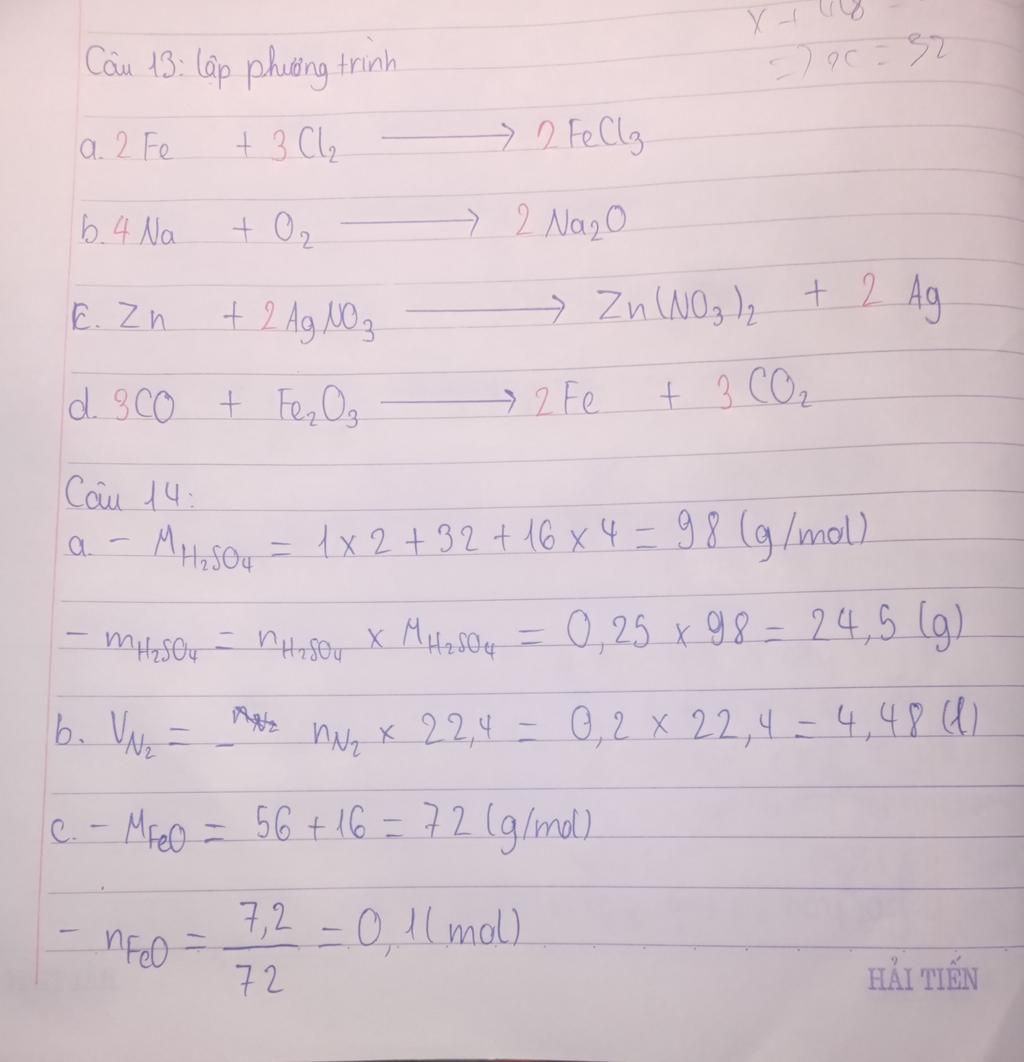 =) x = 32
Câu 13: lập phương trình
a. 2 Fe + 3 Cl2 → 2 FeCl3
b. 4 Na + O2 → 2 Na2O
c. Zn + 2 AgNO3 → Zn(NO3)2 + 2 Ag
d. 3CO + Fe2O3 → 2 Fe + 3 CO2
Câu 14:
a. - M H2SO4 = 1 x 2 + 32 + 16 x 4 = 98 (g/mol)
- m H2SO4 = n H2SO4 x M H2SO4 = 0,25 x 98 = 24,5 (g)
b. V N2 = n N2 x 22,4 = 0,2 x 22,4 = 4,48 (l)
c. - M FeO = 56 + 16 = 72 (g/mol)
- n FeO = 7,2 / 72 = 0,1 (mol)
HẢI TIẾN